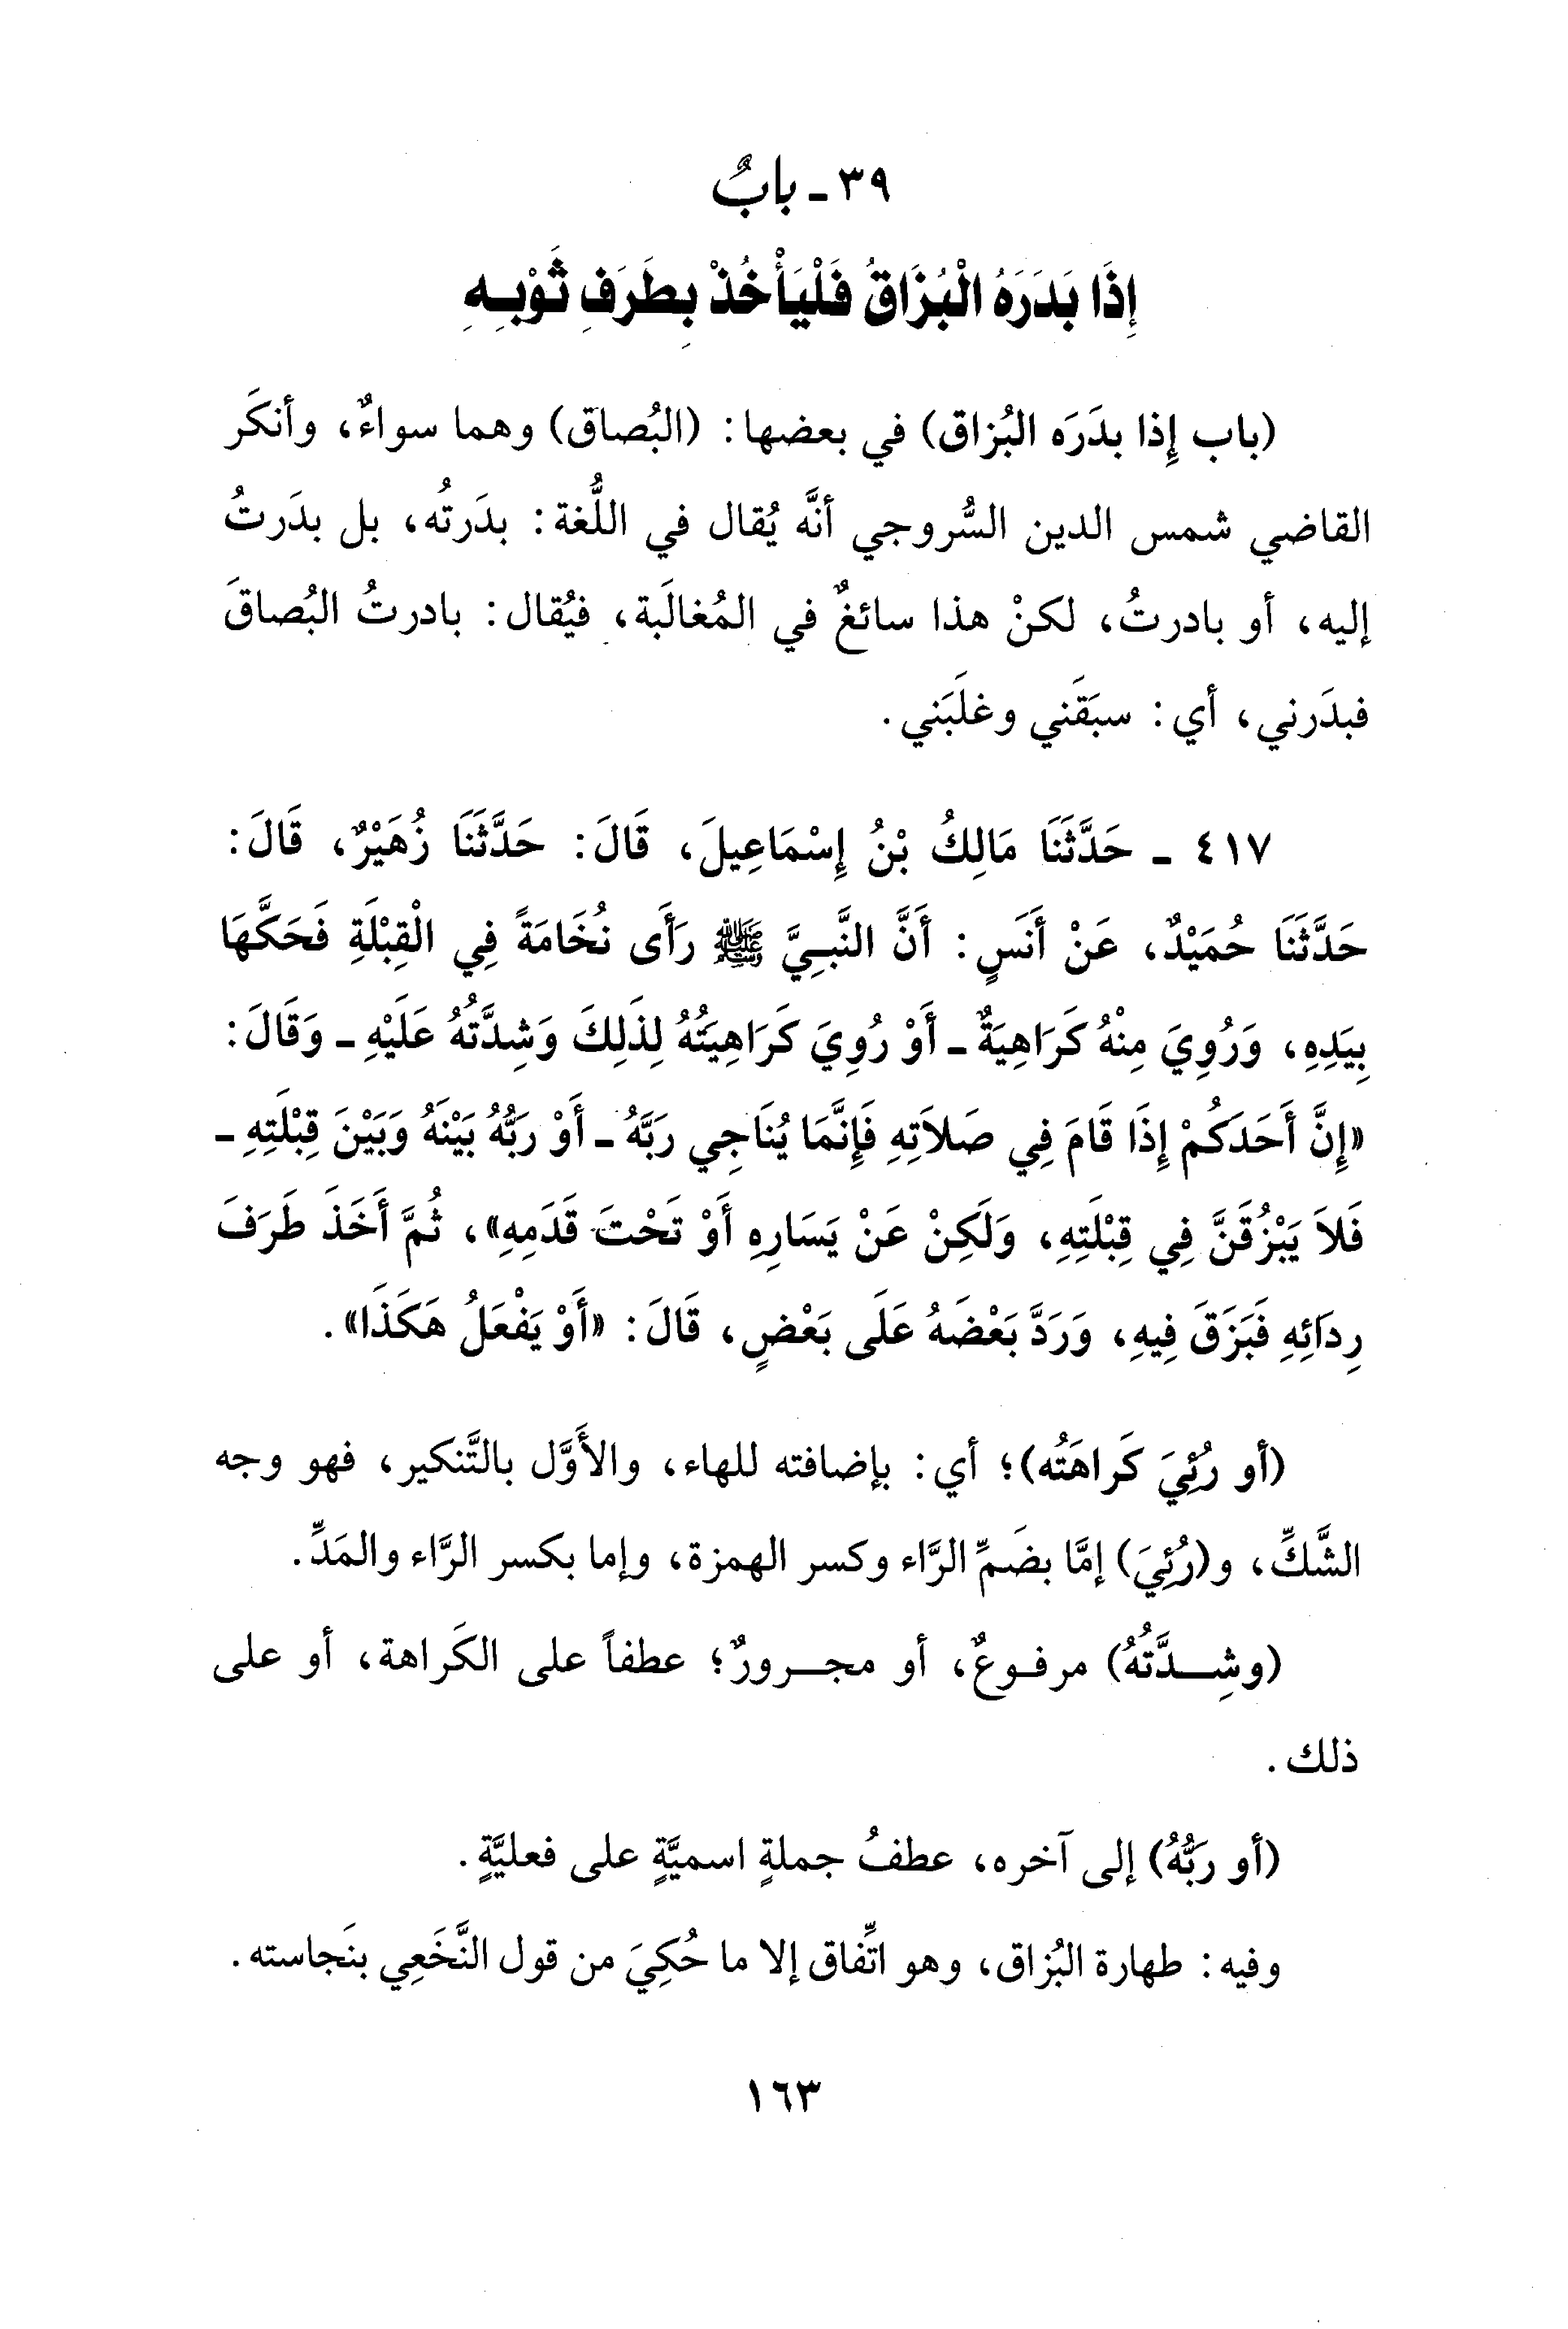 ٣٩ - بابٌ
إِذَا بَدَرَهُ الْبُزَاقُ فَلْيَأْخُذْ بِطَرَفِ ثَوْبِهِ
(باب إِذا بدَرَه البُزاق) في بعضها: (البُصاق) وهما سواءٌ، وأنكَر
القاضي شمس الدين السُّروجي أنَّه يُقال في اللُّغة: بدَرتُه، بل بدَرتُ
إليه، أو بادرتُ، لكنْ هذا سائغٌ في المُغالَبة، فيُقال: بادرتُ البُصاقَ
فبدَرني، أي: سبَقَني وغلَبَني.
٤١٧ - حَدَّثَنَا مَالِكُ بْنُ إِسْمَاعِيلَ، قَالَ: حَدَّثَنَا زُهَيْرٌ، قَالَ:
حَدَّثَنَا حُمَيْدٌ، عَنْ أَنَسٍ: أَنَّ النَّبِيَّ ﷺ رَأَى نُخَامَةً فِي الْقِبْلَةِ فَحَكَّهَا
بِيَدِهِ، وَرُوِيَ مِنْهُ كَرَاهِيَةٌ - أَوْ رُوِيَ كَرَاهِيَتُهُ لِذَلِكَ وَشِدَّتُهُ عَلَيْهِ - وَقَالَ:
«إِنَّ أَحَدَكُمْ إِذَا قَامَ فِي صَلاَتِهِ فَإِنَّمَا يُنَاجِي رَبَّهُ - أَوْ رَبُّهُ بَيْنَهُ وَبَيْنَ قِبْلَتِهِ -
فَلاَ يَبْزُقَنَّ فِي قِبْلَتِهِ، وَلَكِنْ عَنْ يَسَارِهِ أَوْ تَحْتَ قَدَمِهِ»، ثُمَّ أَخَذَ طَرَفَ
رِدَائِهِ فَبَزَقَ فِيهِ، وَرَدَّ بَعْضَهُ عَلَى بَعْضٍ، قَالَ: «أَوْ يَفْعَلُ هَكَذَا».
(أو رُئِيَ كَراهَتُه)؛ أي: بإضافته للهاء، والأَوَّل بالتَّنكير، فهو وجه
الشَّكِّ، و(رُئِيَ) إمَّا بضَمِّ الرَّاء وكسر الهمزة، وإما بكسر الرَّاء والمَدِّ.
(وشِدَّتُهُ) مرفوعٌ، أو مجرورٌ؛ عطفاً على الكَراهة، أو على
ذلك.
(أو رَبُّهُ) إلى آخره، عطفُ جملةٍ اسميَّةٍ على فعليَّةٍ.
وفيه: طهارة البُزاق، وهو اتِّفاق إلا ما حُكِيَ من قول النَّخَعِي بنَجاسته.
١٦٣